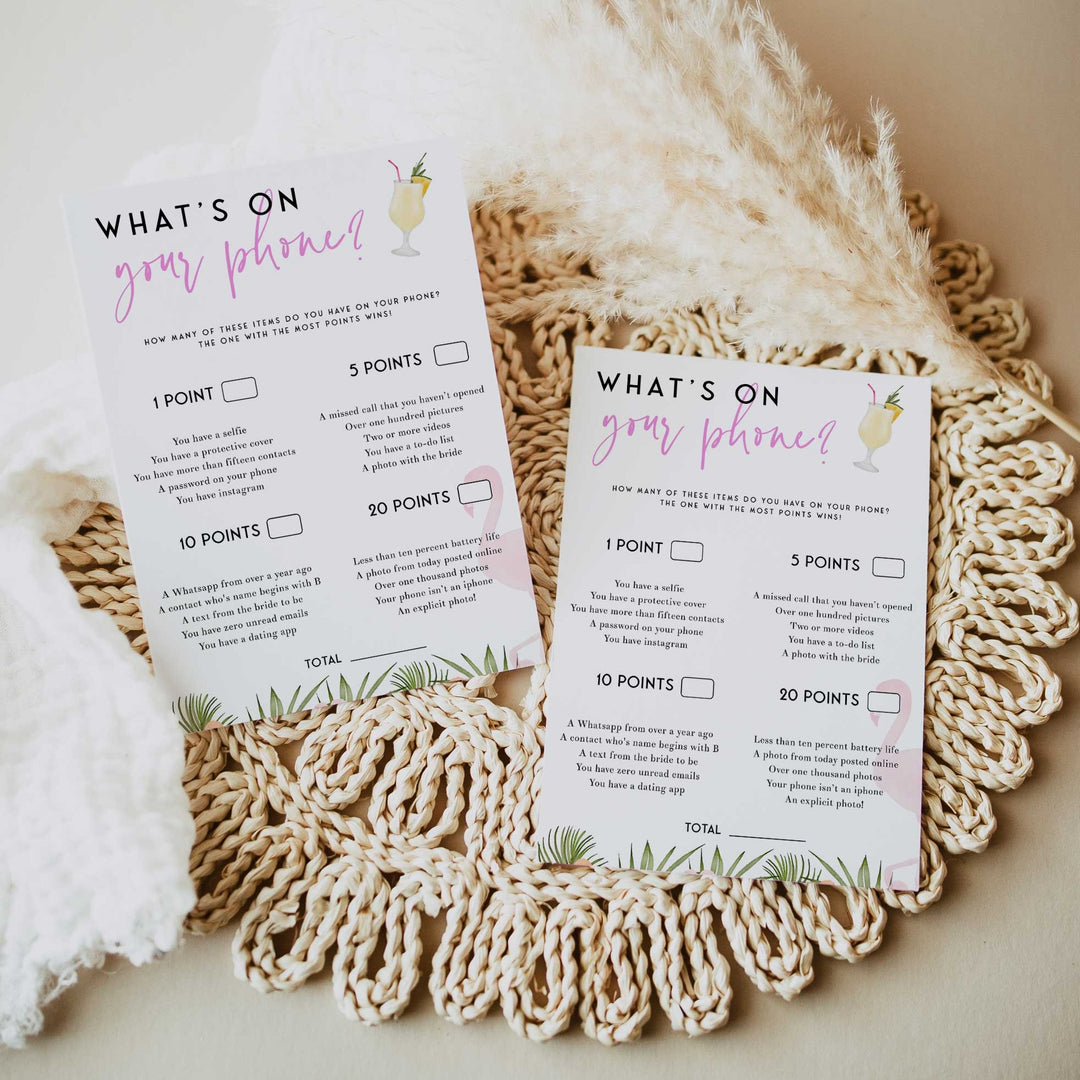 WHAT'S ON
your phone?
HOW MANY OF THESE ITEMS DO YOU HAVE ON YOUR PHONE?
THE ONE WITH THE MOST POINTS WINS!
1 POINT
You have a selfie
You have a protective cover
You have more than fifteen contacts
A password on your phone
You have instagram
5 POINTS
A missed call that you haven't opened
Over one hundred pictures
Two or more videos
You have a to-do list
A photo with the bride
10 POINTS
A Whatsapp from over a year ago
A contact who's name begins with B
A text from the bride to be
You have zero unread emails
You have a dating app
20 POINTS
Less than ten percent battery life
A photo from today posted online
Over one thousand photos
Your phone isn't an iphone
An explicit photo!
TOTAL
WHAT'S ON
your phone?
HOW MANY OF THESE ITEMS DO YOU HAVE ON YOUR PHONE?
THE ONE WITH THE MOST POINTS WINS!
1 POINT
You have a selfie
You have a protective cover
You have more than fifteen contacts
A password on your phone
You have instagram
5 POINTS
A missed call that you haven't opened
Over one hundred pictures
Two or more videos
You have a to-do list
A photo with the bride
10 POINTS
A Whatsapp from over a year ago
A contact who's name begins with B
A text from the bride to be
You have zero unread emails
You have a dating app
20 POINTS
Less than ten percent battery life
A photo from today posted online
Over one thousand photos
Your phone isn't an iphone
An explicit photo!
TOTAL